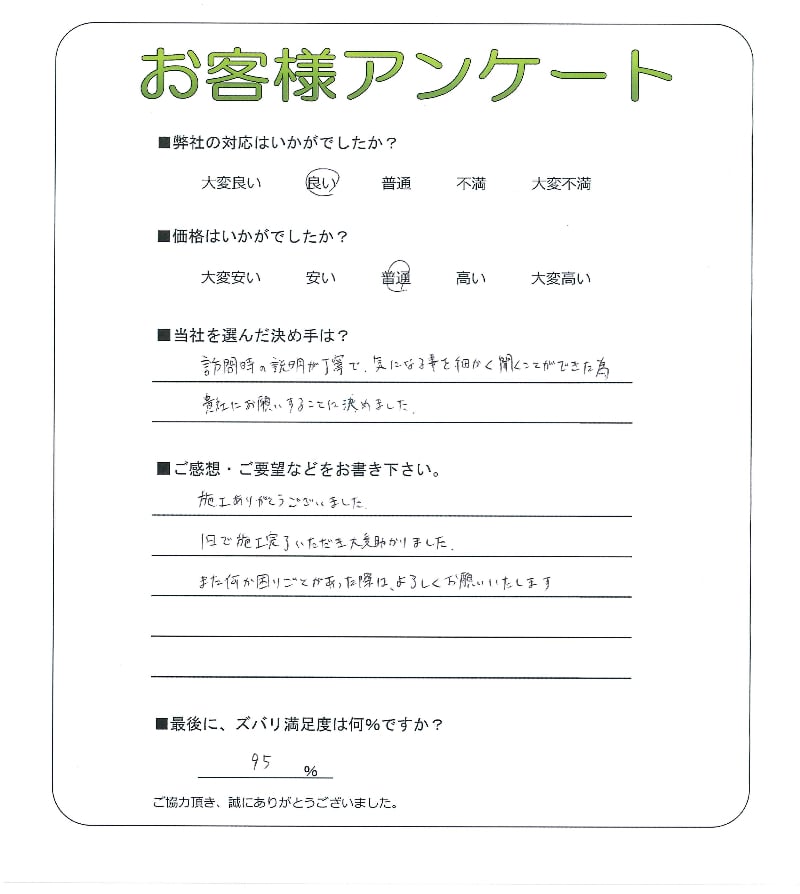 お客様アンケート
■弊社の対応はいかがでしたか？
大変良い 良い 普通 不満 大変不満
■価格はいかがでしたか？
大変安い 安い 普通 高い 大変高い
■当社を選んだ決め手は？
訪問時の説明が丁寧で、気になる事を細かく聞くことができた為
貴社にお願いすることに決めました。
■ご感想・ご要望などをお書き下さい。
施工ありがとうございました。
1日で施工完了いただき大変助かりました。
また何か困りごとがあった際は、よろしくお願いいたします
■最後に、ズバリ満足度は何%ですか？
95 %
ご協力頂き、誠にありがとうございました。